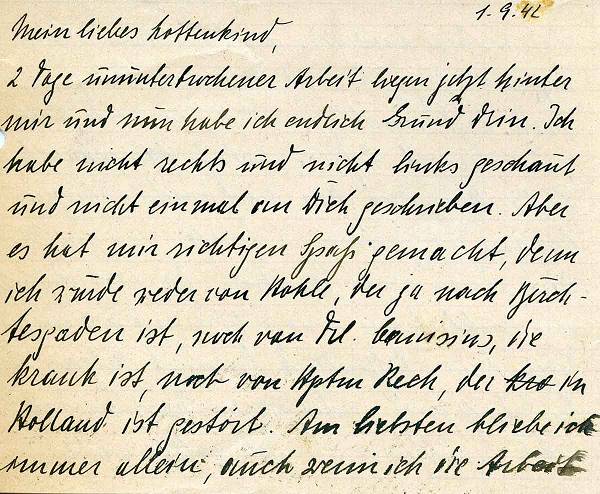 1.9.42
Mein liebes Kottenkind,
2 Tage ununterbrochener Arbeit liegen jetzt hinter
mir und nun habe ich endlich Grund drin. Ich
habe nicht rechts und nicht links geschaut
und nicht einmal an Dich geschrieben. Aber
es hat mir richtigen Spaß gemacht, denn
ich wurde weder von Kohle, der ja nach Berch-
tesgaden ist, noch von Frl. die
krank ist, noch von Hptm Rech, der in
Holland ist gestört. Am liebsten bliebe ich
immer allein, auch wenn ich die Arbeit